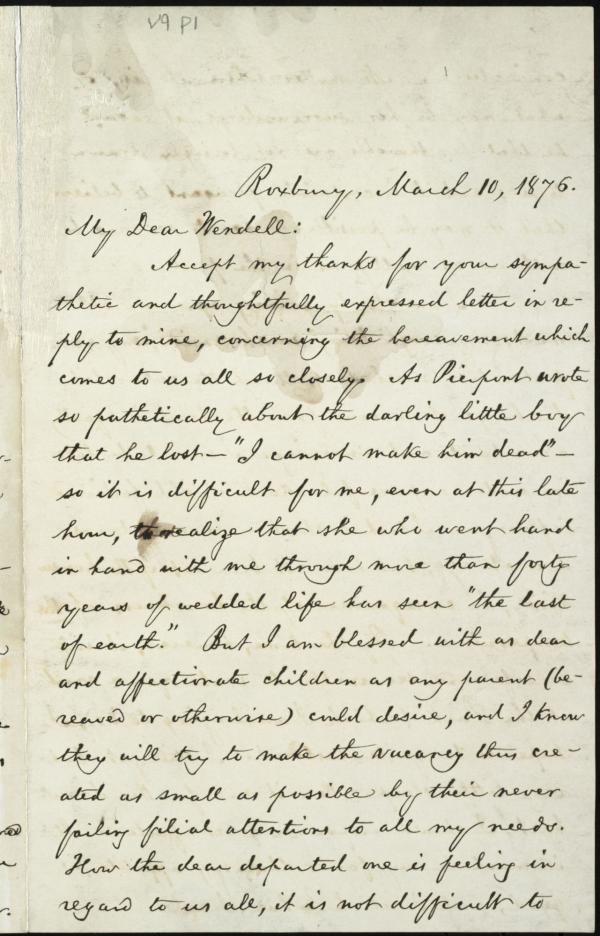 V9 P1
Roxbury, March 10, 1876.
My Dear Wendell:
Accept my thanks for your sympa-
thetic and thoughtfully expressed letter in re-
ply to mine, concerning the bereavement which
comes to us all so closely. As Pierpont wrote
so pathetically about the darling little boy
that he lost—"I cannot make him dead"—
so it is difficult for me, even at this late
hour, to realize that she who went hand
in hand with me through more than forty
years of wedded life has seen "the last
of earth." But I am blessed with as dear
and affectionate children as any parent (be-
reaved or otherwise) could desire, and I know
they will try to make the vacancy thus cre-
ated as small as possible by their never
failing filial attentions to all my needs.
How the dear departed one is feeling in
regard to us all, it is not difficult to